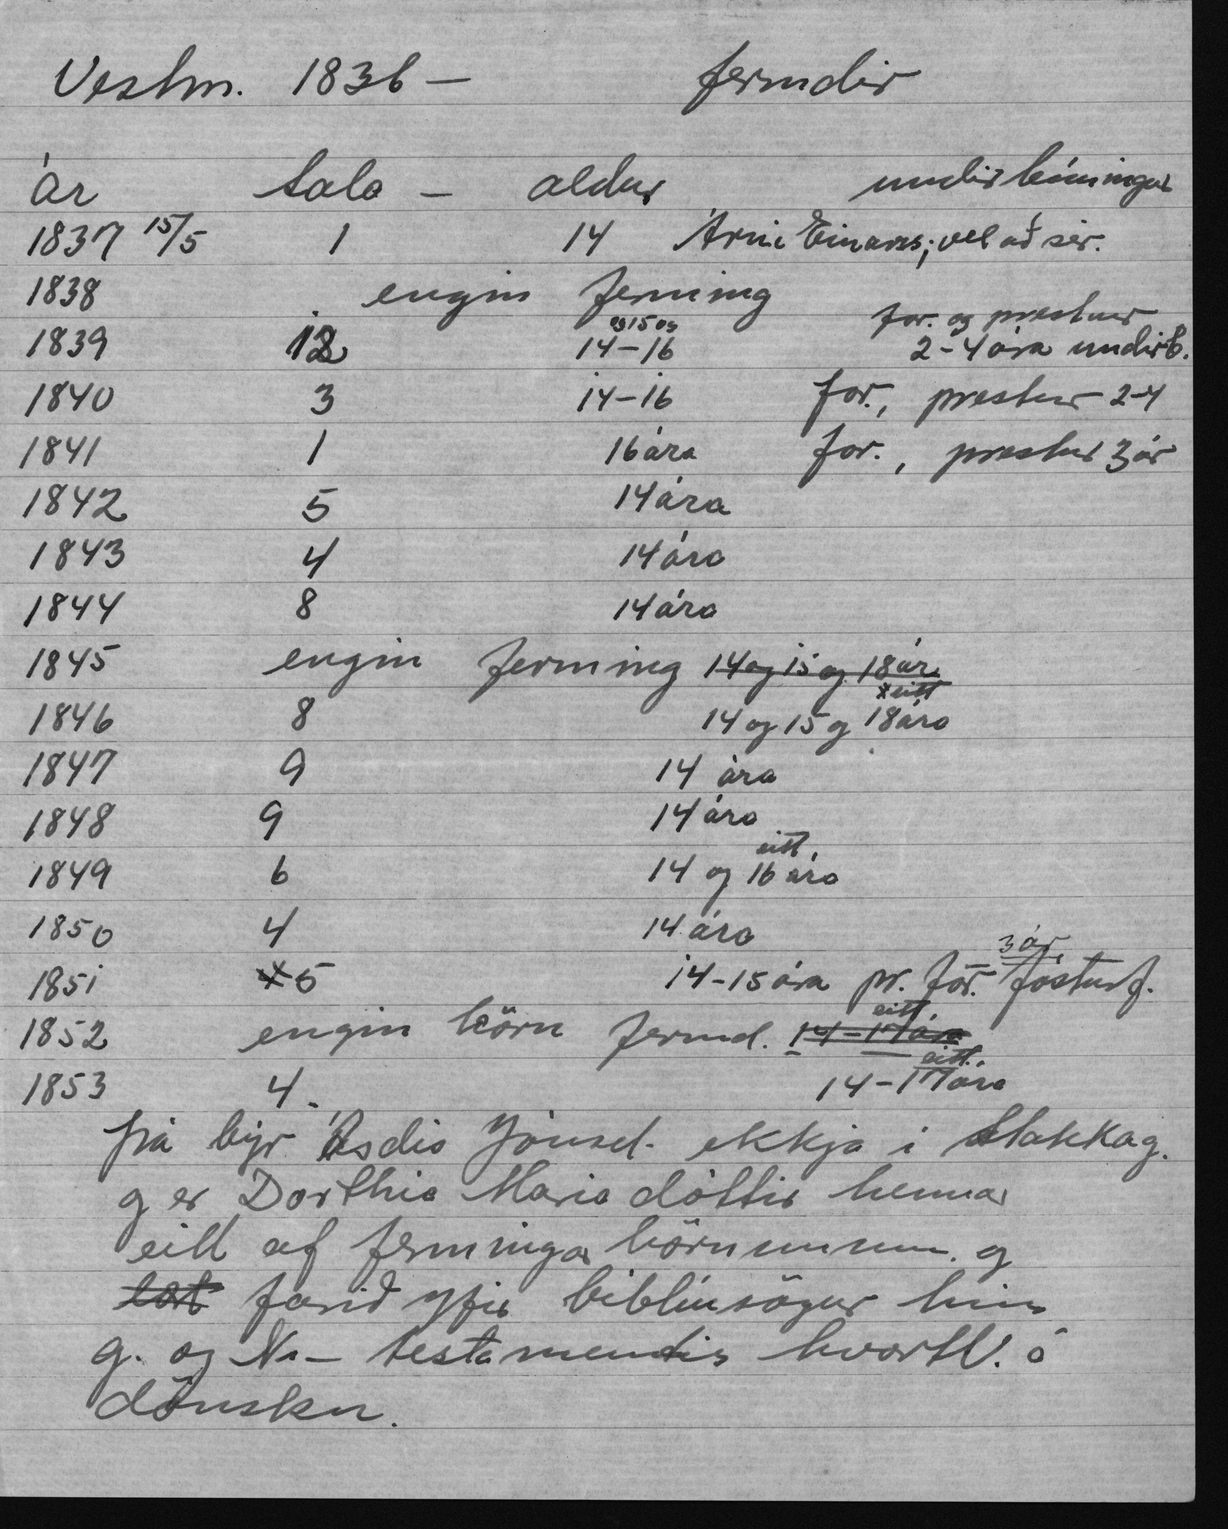 Vestm. 1836 — fermdir
ár tala — aldur undirbúningur
1837 15/5 1 14 Árni Einars; vel að sér.
1838 engin ferming
og 15 og for. og prestur
1839 12 14-16 2-4 ára undirb.
1840 3 14-16 for., prestur 2-4
1841 1 16 ára for., prestur 3 ár
1842 5 14 ára
1843 4 14 ára
1844 8 14 ára
1845 engin ferming 14 og 15 og 18 ár
eitt
1846 8 14 og 15 og 18 ára
1847 9 14 ára
1848 9 14 ára
eitt
1849 6 14 og 16 ára
1850 4 14 ára
3 ár
1851 5 14-15 ára pr. for. fósturf.
eitt
1852 engin börn fermd. 14-17 ára
eitt
1853 4 14-17 ára
þá býr Ásdis Jónsd. ekkja i Stakkag.
og er Dorthia Maria dóttir hennar
eitt af fermingar börnunum og
farið yfir biblíusögur hins
g. og N. — testamentis hvortv. á
dönsku.